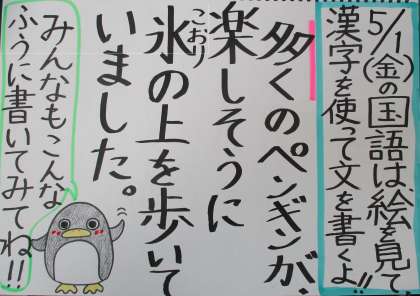 5/1(金)の国語は絵を見て、
漢字を使って文を書くよ!!
多くのペンギンが、
楽しそうに
氷の上を歩いて
こおり
いました。
みんなもこんな
ふうに書いてみてね!!